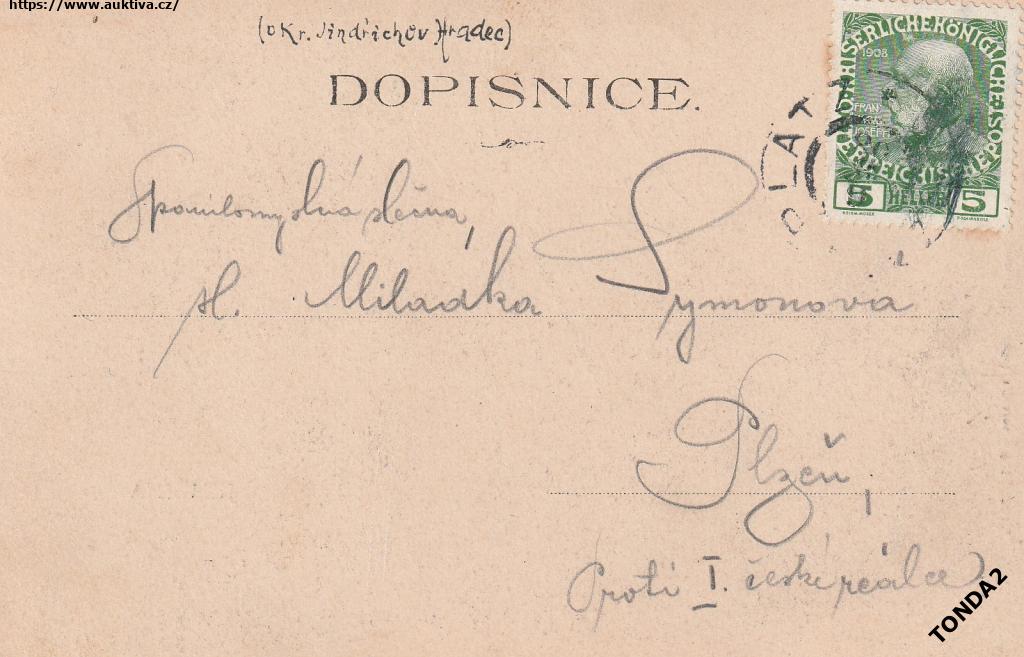 https://www.auktiva.cz/
(okr. Jindřichův Hradec)
DOPISNICE.
KAISERLICHE KÖNIGLICHE
1908
FRANZ
JOSEF I.
ÖSTERREICHISCHE POST
5 HELLER 5
Spanilomyslná slečna,
sl. Miladka Symonova
Plzeň,
Proti I. české reálce
TONDA2